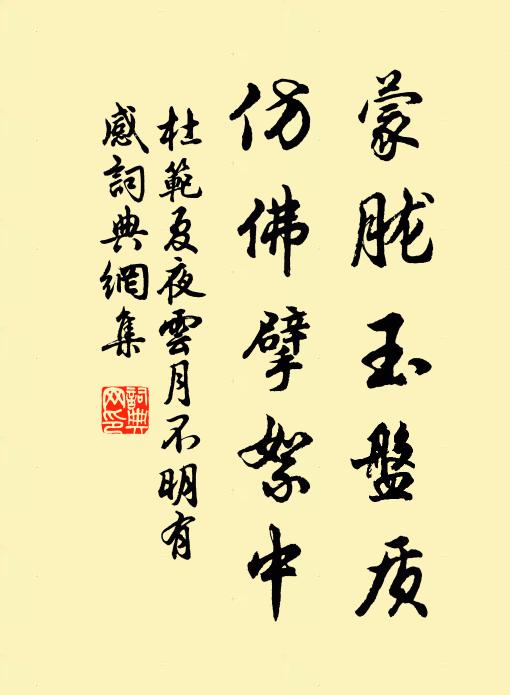 蒙朧玉盤质
仿佛擘絮中
杜範夏夜雲月不明有
感詞典網集
詞典
网印